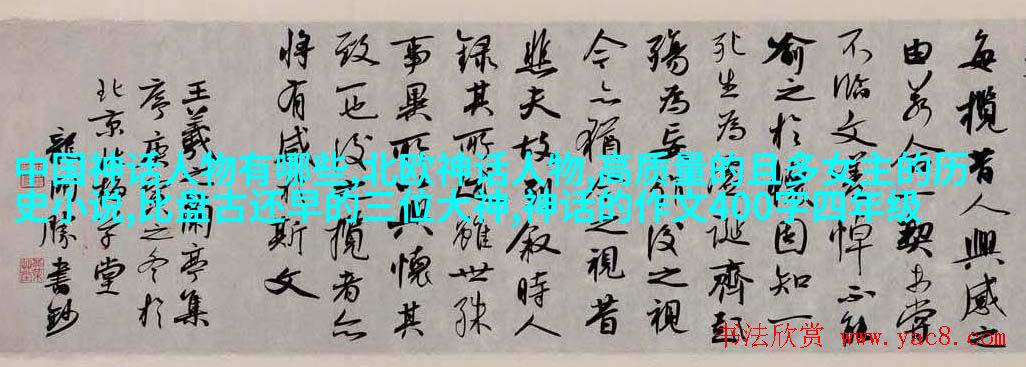 每攬昔人興感之
由若合一契未嘗
不臨文嗟悼不能
喻之於懷固知一
死生為虛誕齊彭
殤為妄作後之視
今亦猶今之視昔
悲夫故列敘時人
錄其所述雖世殊
事異所以興懷其
致一也後之攬者亦
將有感於斯文
王羲之蘭亭集
序庚之冬於
北京子堂
龍開勝書鈔
中国神话人物有哪些,北欧神话人物,高质量的且多女主的历
史小说,比盘古还早的三位大神,神话的作文400字四年级
书法欣赏 www.yac8.com